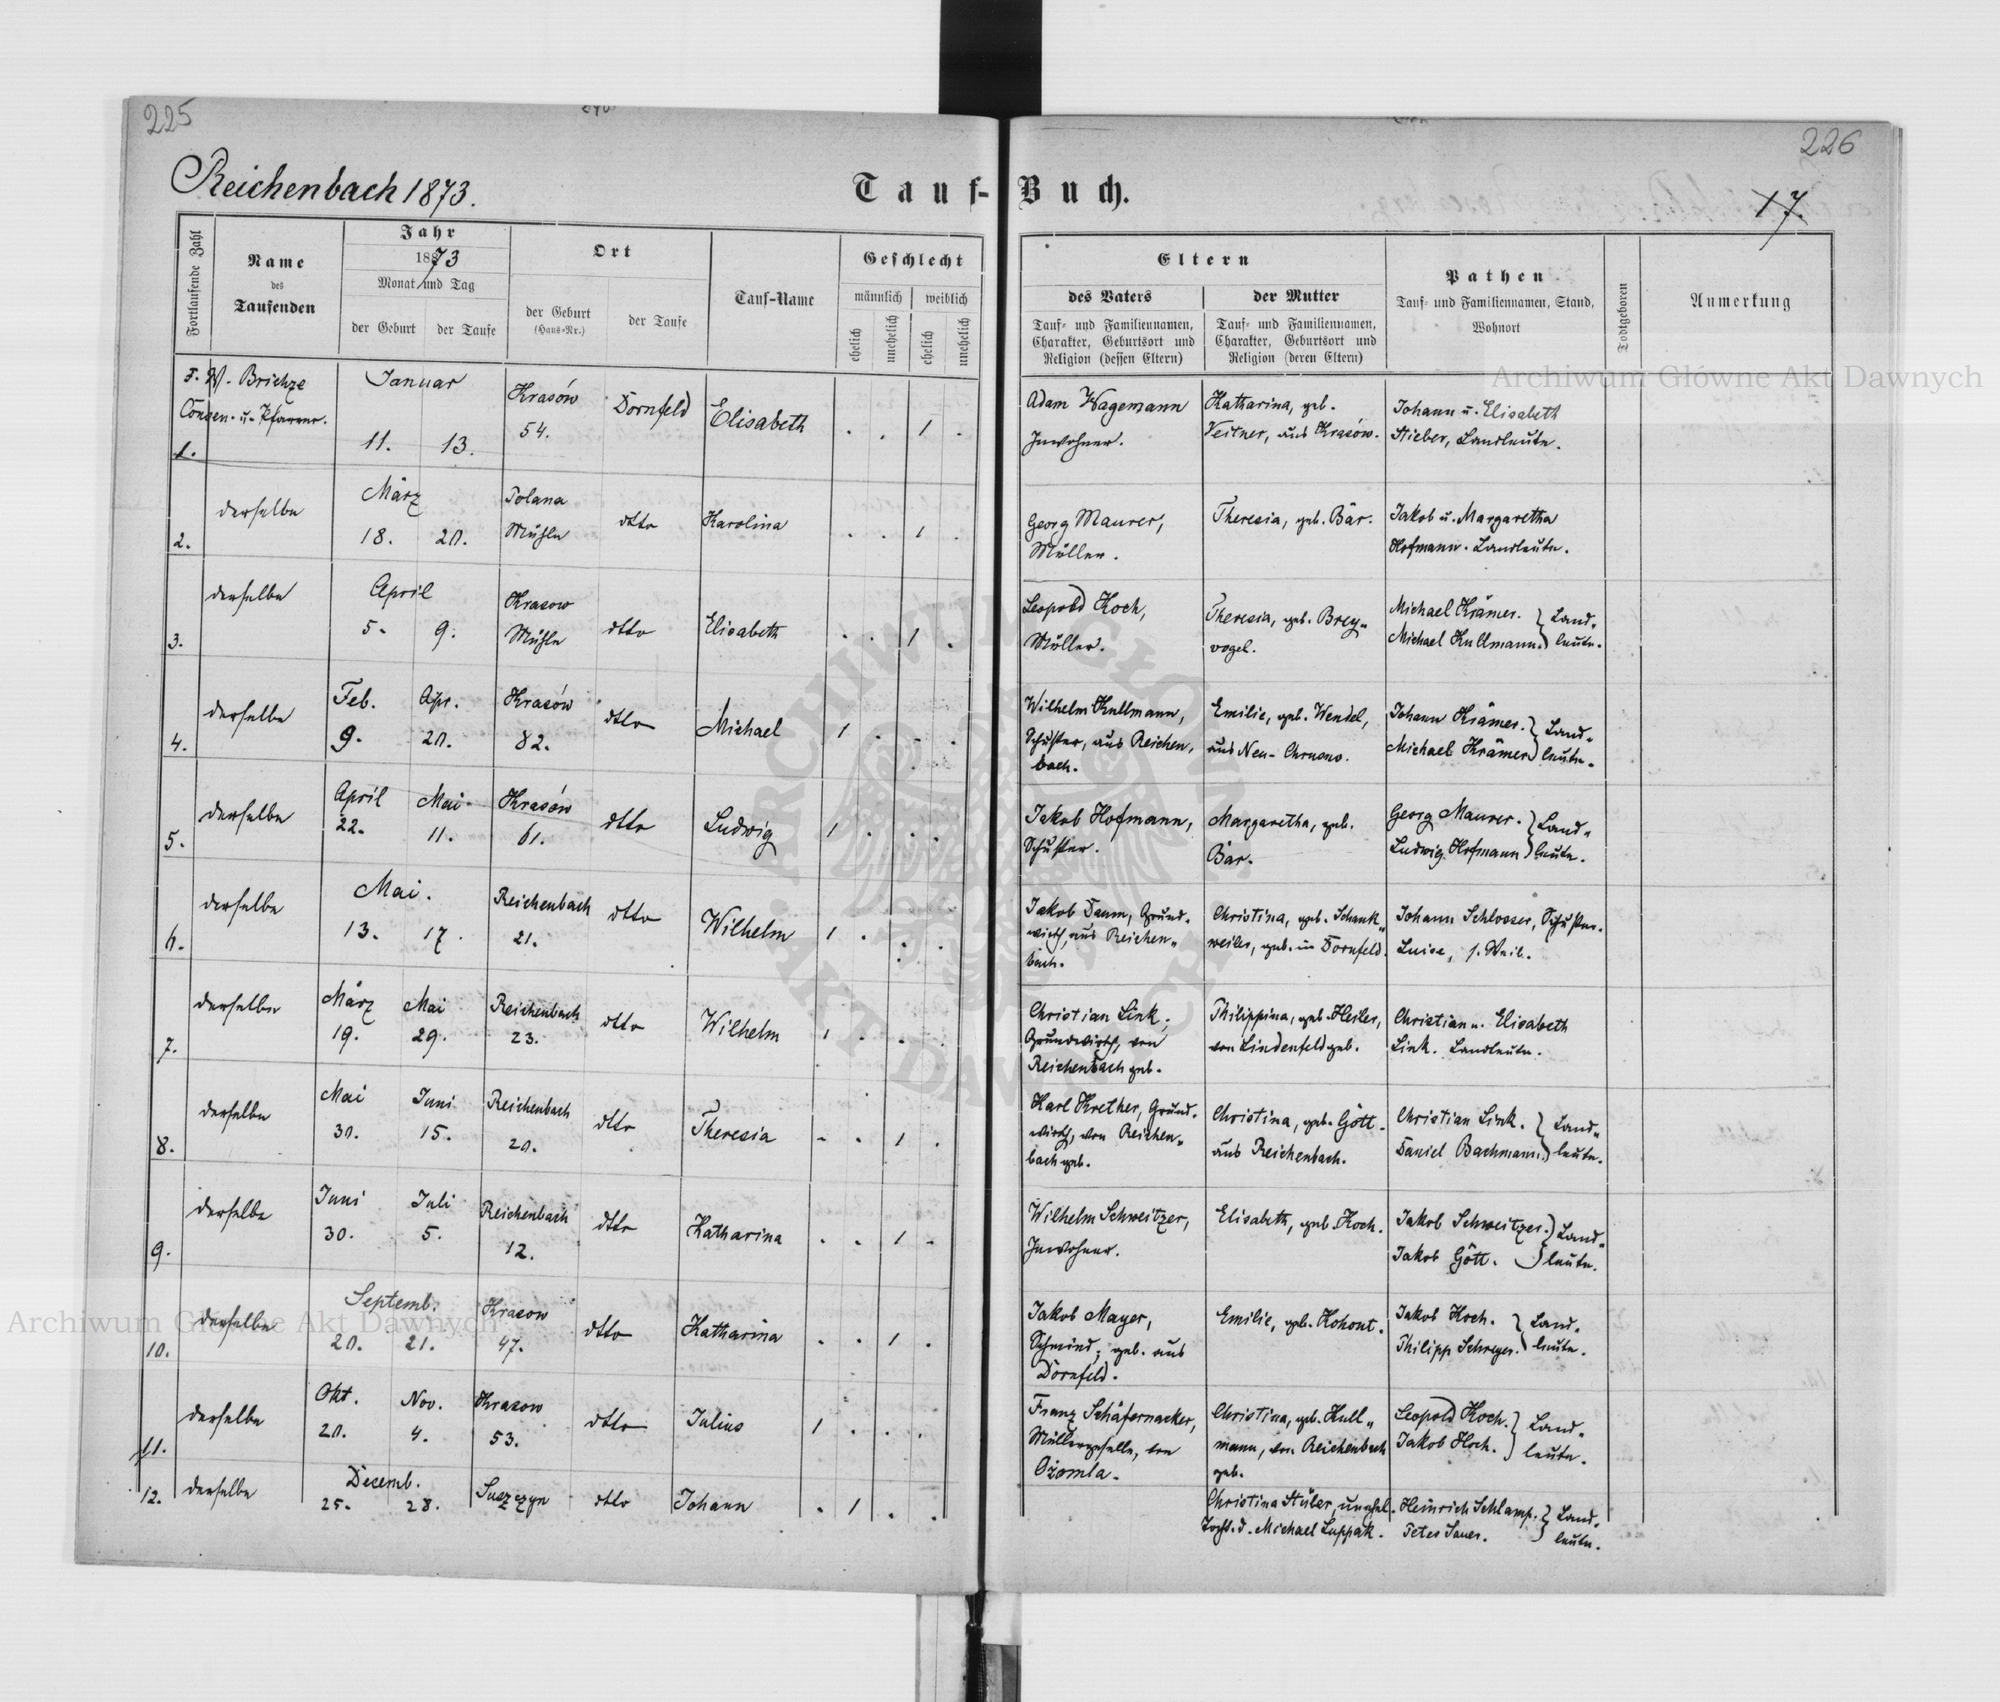 225
226
Reichenbach 1873.
Tauf-Buch.
17.
Fortlaufende Zahl
Name
des
Taufenden
Jahr
1873
Monat und Tag
der Geburt
der Taufe
Ort
der Geburt
(Haus-Nr.)
der Taufe
Tauf-Name
Geschlecht
männlich
weiblich
ehelich
unehelich
ehelich
unehelich
Eltern
des Vaters
Tauf- und Familiennamen,
Charakter, Geburtsort und
Religion (dessen Eltern)
der Mutter
Tauf- und Familiennamen,
Charakter, Geburtsort und
Religion (deren Eltern)
Pathen
Tauf- und Familiennamen, Stand,
Wohnort
Todtgeboren
Anmerkung
1. Pfarrer. Januar 11. 13. Krasów 54. Dornfeld Elisabeth . . 1 .
Adam Wagemann
Inwohner.
Katharina, geb.
aus Krasów.
Johann u. Elisabeth
Stieber, Landleute.
2. derselbe März 18. 20. Polana Mühle dtto Karolina . . 1 .
Georg Maurer,
Müller.
Theresia, geb. Bär.
Jakob u. Margaretha
Hofmann. Landleute.
3. derselbe April 5. 9. Krasow Mühle dtto Elisabeth . . 1 .
Leopold Koch,
Müller.
Theresia, geb. Brey„
vogel.
Michael Krämer.
Michael Kullmann. } Land„
leute.
4. derselbe Feb. 9. Apr. 20. Krasów 82. dtto Michael 1 . - .
Wilhelm Kullmann,
Schuster, aus Reichen,
bach.
Emilie, geb. Wendel,
aus Neu-Chrusno.
Johann Krämer.
Michael Krämer } Land„
leute.
5. derselbe April 22. Mai 11. Krasów 61. dtto Ludwig 1 . . .
Jakob Hofmann,
Schuster.
Margaretha, geb.
Bär.
Georg Maurer.
Ludwig Hofmann } Land„
leute.
6. derselbe Mai. 13. 17. Reichenbach 21. dtto Wilhelm 1 . . .
Jakob Daum, Grund„
wirth, aus Reichen„
bach.
Christina, geb. Schank„
weiler, geb. in Dornfeld.
Johann Schlosser, Schuster.
Luise, s. Weib.
7. derselbe März 19. Mai 29. Reichenbach 23. dtto Wilhelm 1 . . .
Christian Link,
Grundwirth, von
Reichenbach geb.
Philippina, geb. Heiler,
von Lindenfeld geb.
Christian u. Elisabeth
Link. Landleute.
8. derselbe Mai 30. Juni 15. Reichenbach 20. dtto Theresia - . 1 .
Karl Krether, Grund„
wirth, von Reichen„
bach geb.
Christina, geb. Gött.
aus Reichenbach.
Christian Link.
Daniel Bachmann. } Land„
leute.
9. derselbe Juni 30. Juli 5. Reichenbach 12. dtto Katharina . . 1 -
Wilhelm Schweitzer,
Inwohner.
Elisabeth, geb. Koch.
Jakob Schweitzer.
Jakob Gött. } Land„
leute.
10. derselbe Septemb. 20. 21. Krasow 47. dtto Katharina . . 1 .
Jakob Mayer,
Schmied, geb. aus
Dornfeld.
Emilie, geb. Kohout.
Jakob Koch.
Philipp Schreyer. } Land„
leute.
11. derselbe Okt. 20. Nov. 4. Krasow 53. dtto Julius 1 . . .
Franz Schäfernacker,
Müllergeselle, von
Ożomla.
Christina, geb. Kull„
mann, von Reichenbach
geb.
Leopold Koch.
Jakob Koch. } Land„
leute.
12. derselbe Decemb. 25. 28. Suszczyn dtto Johann . 1 . .
Christina Stüler, unehel.
Tocht. d. Michael Luppak.
Heinrich Schlamp.
Peter Sauer. } Land„
leute.
Archiwum Główne Akt Dawnych
Archiwum Główne Akt Dawnych
ARCHIWUM GŁÓWNE
AKT DAWNYCH